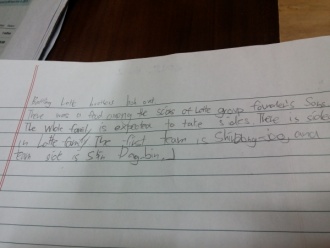 Family Lotte
There was a feud among the sons of Lotte group founder's Sons
The whole family is expected to take sides. There is sides
in Lotte family. The first team is Shin Dong-
team side is Shin Dong-bin.